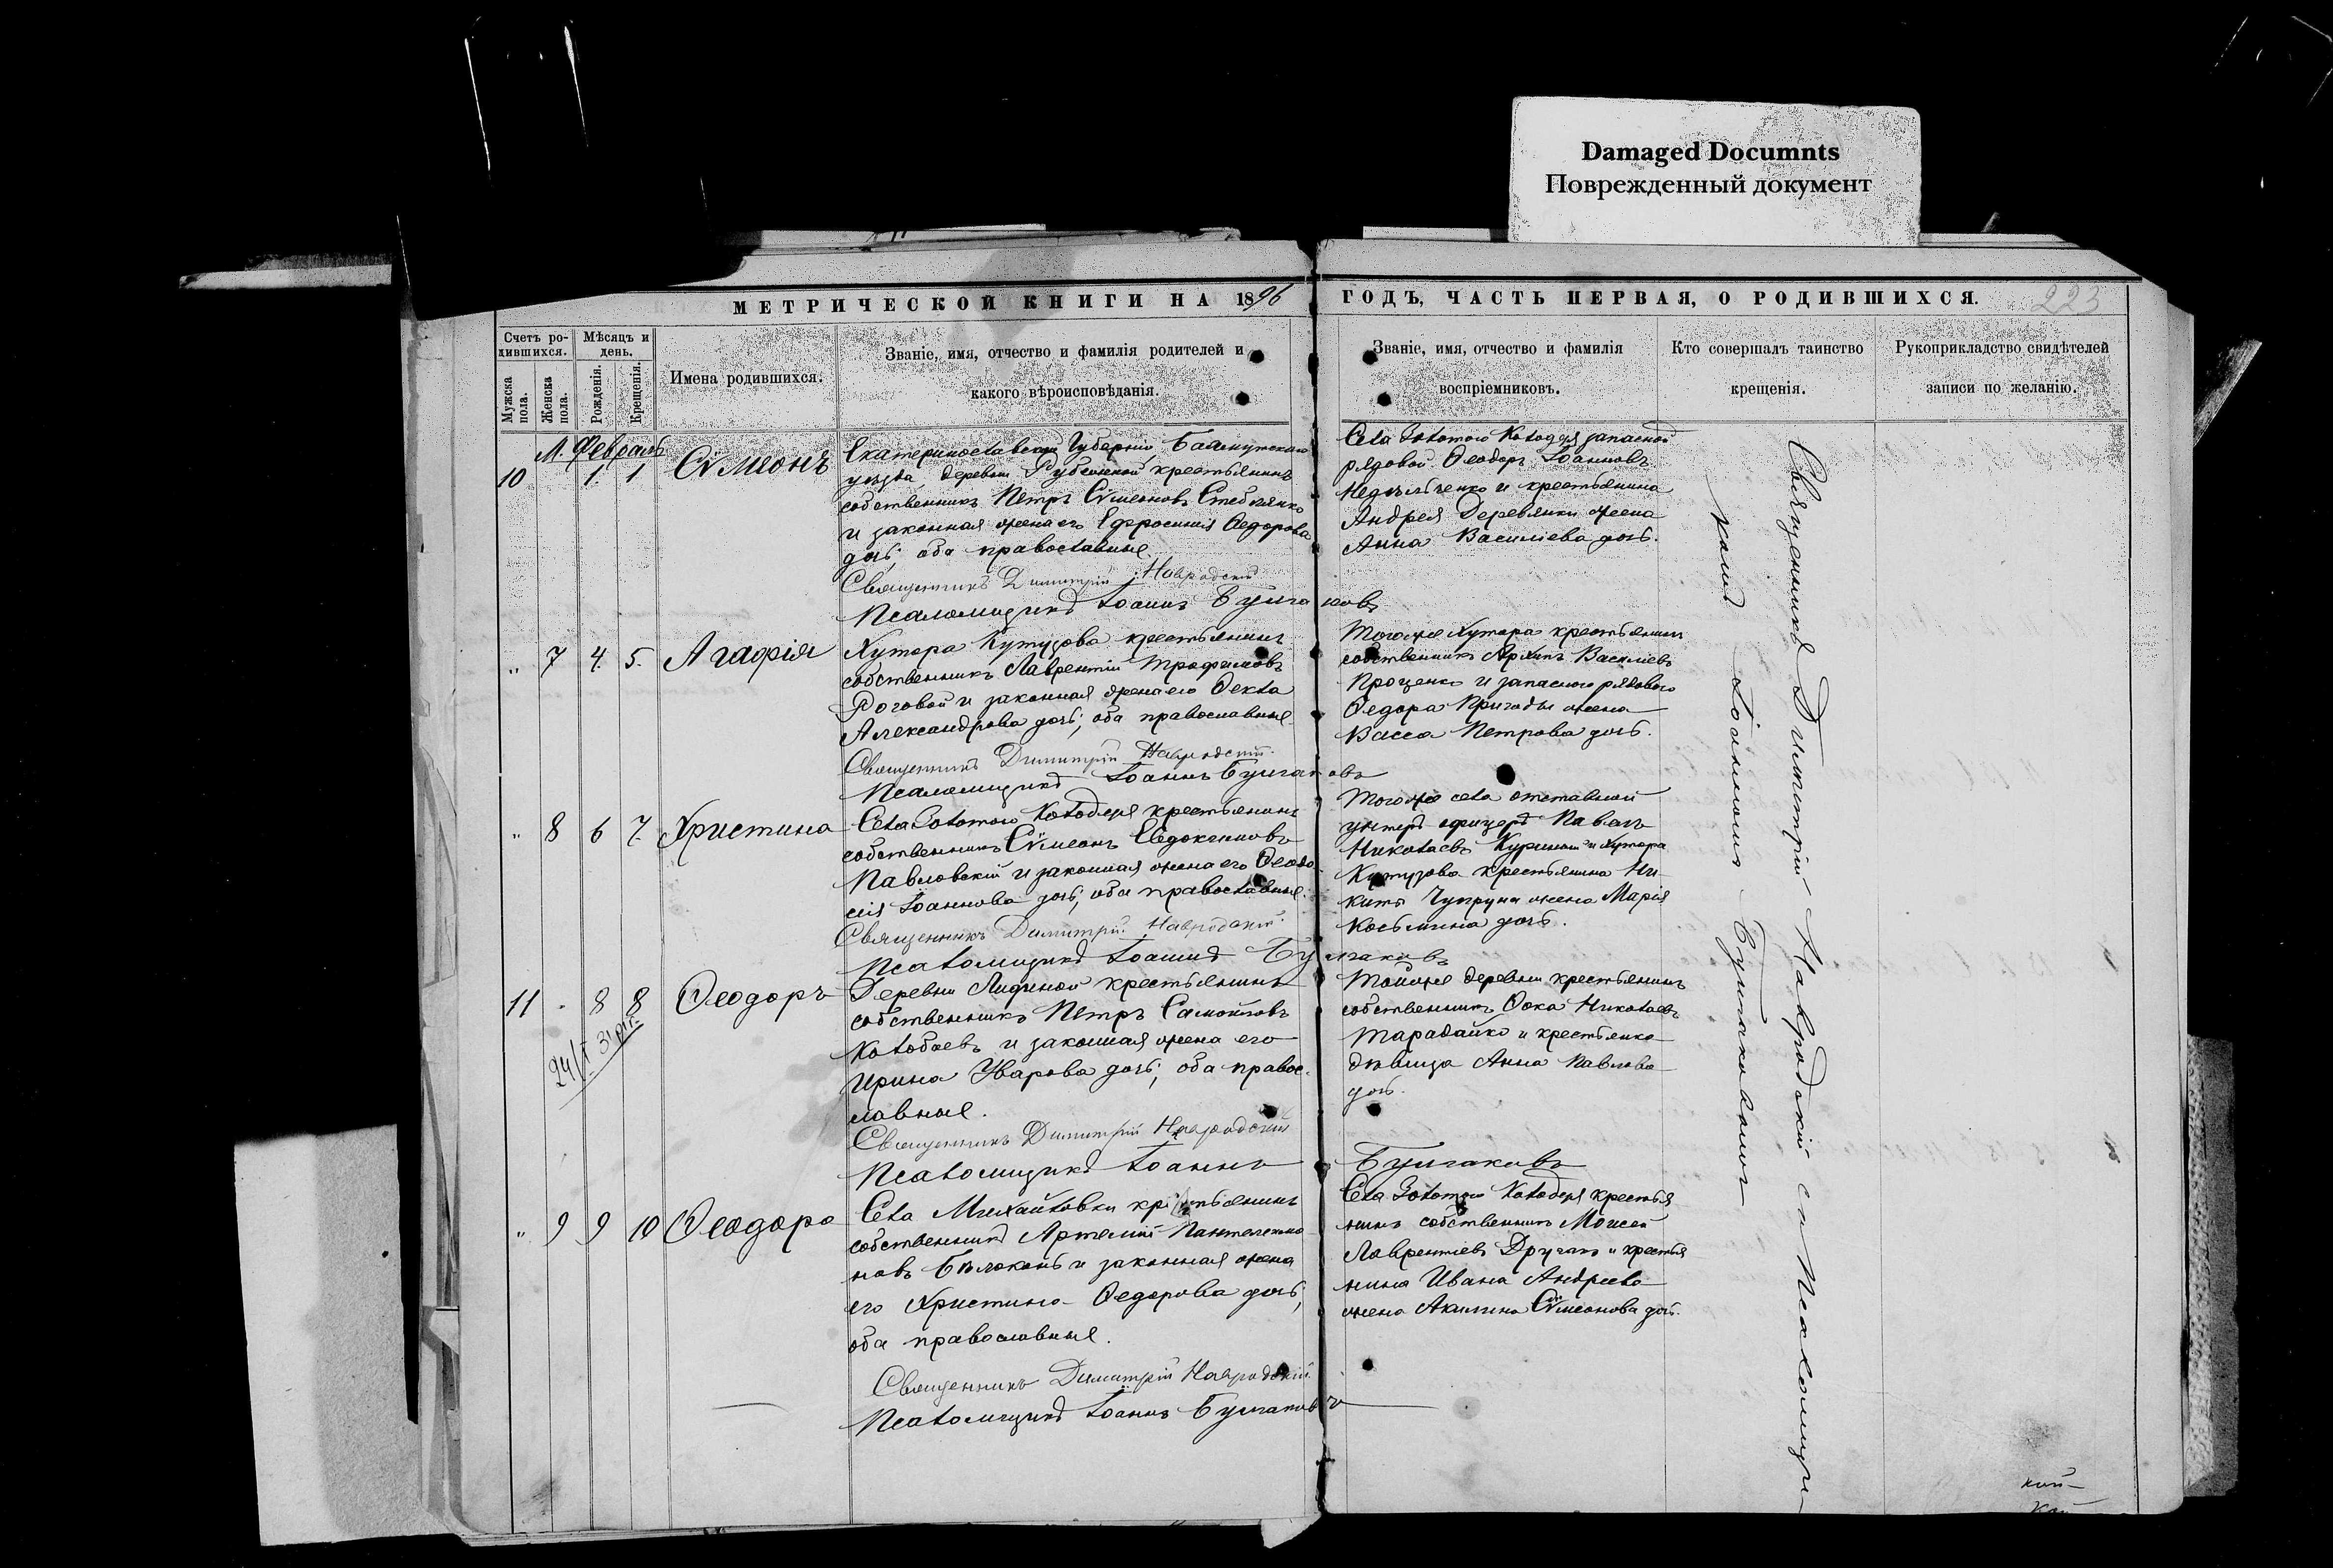 Damaged Documnts
Поврежденный документ
МЕТРИЧЕСКОЙ КНИГИ НА 1896 ГОДЪ, ЧАСТЬ ПЕРВАЯ, О РОДИВШИХСЯ. 223
Счетъ родившихся.
Мужска пола.
Женска пола.
Мѣсяцъ и день.
Рожденія.
Крещенія.
Имена родившихся.
Званіе, имя, отчество и фамилія родителей и
какого вѣроисповѣданія.
Званіе, имя, отчество и фамилія
воспріемниковъ.
Кто совершалъ таинство
крещенія.
Рукоприкладство свидѣтелей
записи по желанію.
М. Февраль
10 1. 1 Сѵмеонъ
Екатеринославской Губерніи, Бахмутскаго
уѣзда, деревни Рубежной крестьянинъ
собственникъ Петръ Сѵмеоновъ Стеблянко
и законная жена его Ефросинія Федорова
дочь; оба православные.
Священникъ Димитрій Навродскій
Псаломщикъ Іоаннъ Булгаковъ
Села Золотого Колодезя запасной
рядовой Ѳеодоръ Іоанновъ
и крестьянина
Андрея Деревянки жена
Анна Василіева дочь.
" 7 4. 5. Агафія
Хутора Кутузова крестьянинъ
собственникъ Лаврентій Трофимовъ
Роговой и законная жена его Ѳекла
Александрова дочь; оба православные
Священникъ Димитрій Навродскій.
Псаломщикъ Іоаннъ Булгаковъ
Того же хутора крестьянинъ
собственникъ Архипъ Василіевъ
Проценко и запасного рядового
Ѳедора Пригоды жена
Васса Петрова дочь.
" 8 6 7. Христина
Села Золотого Колодезя крестьянинъ
собственникъ Сѵмеонъ Евдокимовъ
Павловскій и законная жена его Ѳеодо-
сія Іоаннова дочь; оба православные.
Священникъ Димитрій Навродскій.
Псаломщикъ Іоаннъ Булгаковъ
Того же села отставной
унтеръ-офицеръ Павелъ
Николаевъ и хутора
Кутузова крестьянина Ни-
киты Чупруна жена Марія
Косьмина дочь.
11 - 8 8 Ѳеодоръ
Деревни Лидиной крестьянинъ
собственникъ Петръ Самойловъ
Колобаевъ и законная жена его
Ирина Уварова дочь; оба правос-
лавные.
Священникъ Димитрій Навродскій
Псаломщикъ Іоаннъ Булгаковъ
Той же деревни крестьянинъ
собственникъ Ѳока Николаевъ
Тарадайко и крестьянка
дѣвица Анна Павлова
дочь.
" 9 9 10 Ѳеодора
Села Михайловки крестьянинъ
собственникъ Артемій Пантелеимо-
новъ Бѣлоконь и законная жена
его Христина Ѳедорова дочь;
оба православные.
Священникъ Димитрій Навродскій.
Псаломщикъ Іоаннъ Булгаковъ
Села Золотого Колодезя крестья
нинъ собственникъ Моисей
Лаврентіевъ и крестья
нина Ивана Андреева
жена Акилина Сѵмеонова дочь.
Священникъ Димитрій Навродскій съ Псаломщи-
комъ Іоанномъ Булгаковымъ